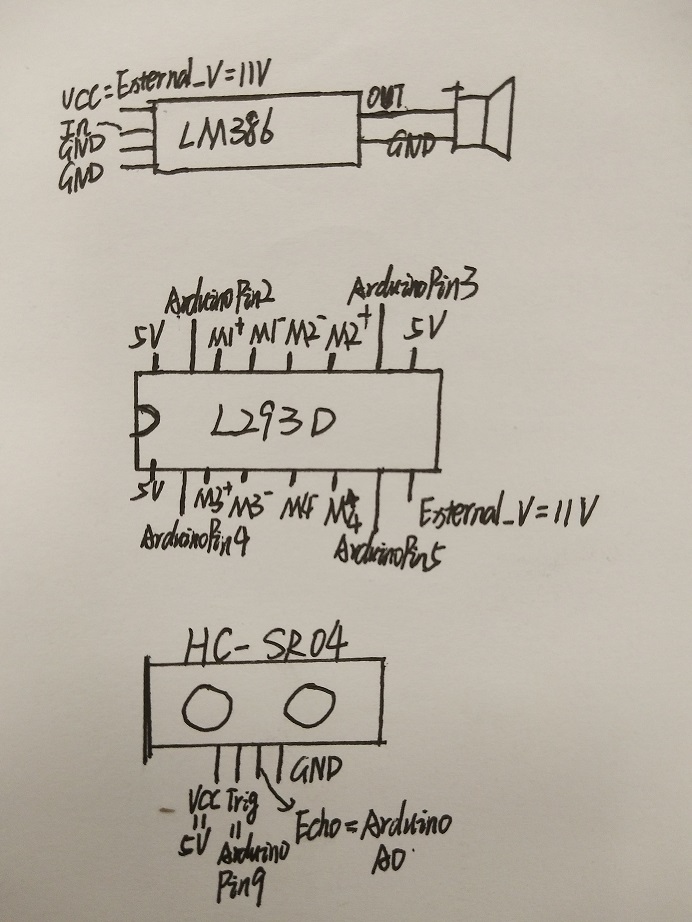 VCC = External_V = 11V
In
GND
GND
LM386
OUT
GND
ArduinoPin2
ArduinoPin3
5V
M1+
M1-
M2-
M2+
5V
L293D
5V
M3+
M3-
M4-
M4+
External_V = 11V
ArduinoPin4
ArduinoPin5
HC-SR04
GND
VCC
Trig
Echo = Arduino
A0
=
5V
=
Arduino
Pin9